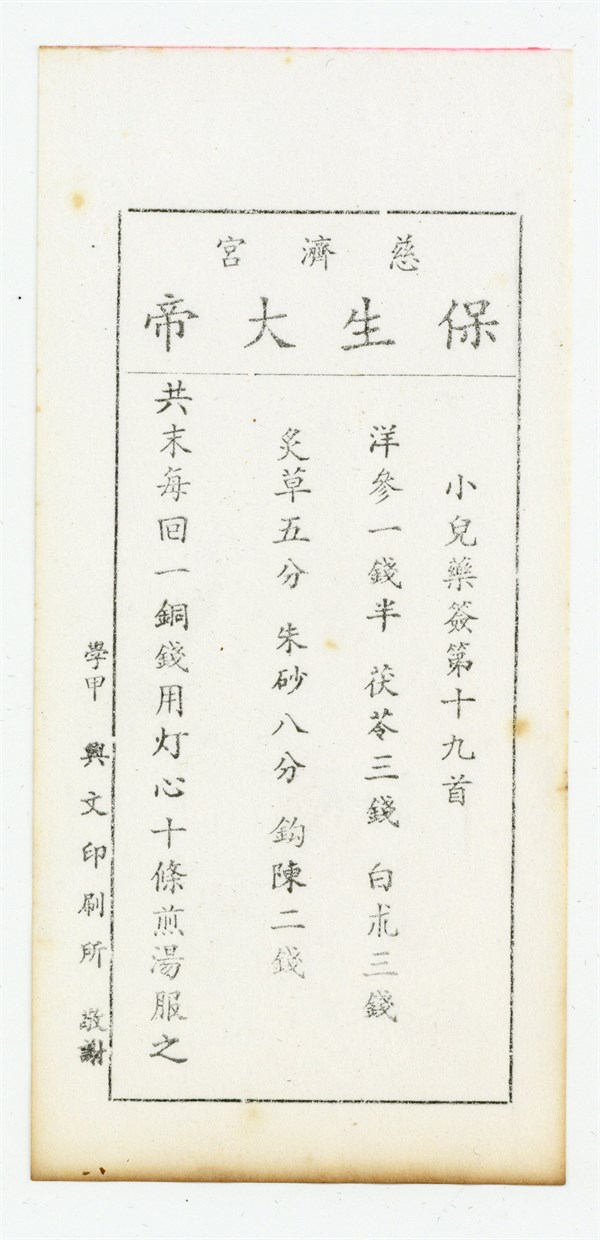 慈濟宮
保生大帝
小兒藥簽第十九首
洋參一錢半 茯苓三錢 白朮三錢
炙草五分 朱砂八分 鈎陳二錢
共末每回一銅錢用灯心十條煎湯服之
學甲 興文印刷所 敬謝